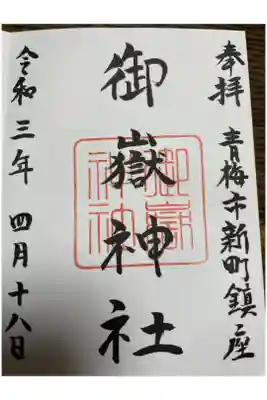 奉拝 青梅市新町鎮座
御嶽神社
令和三年 四月十八日
御嶽
神社